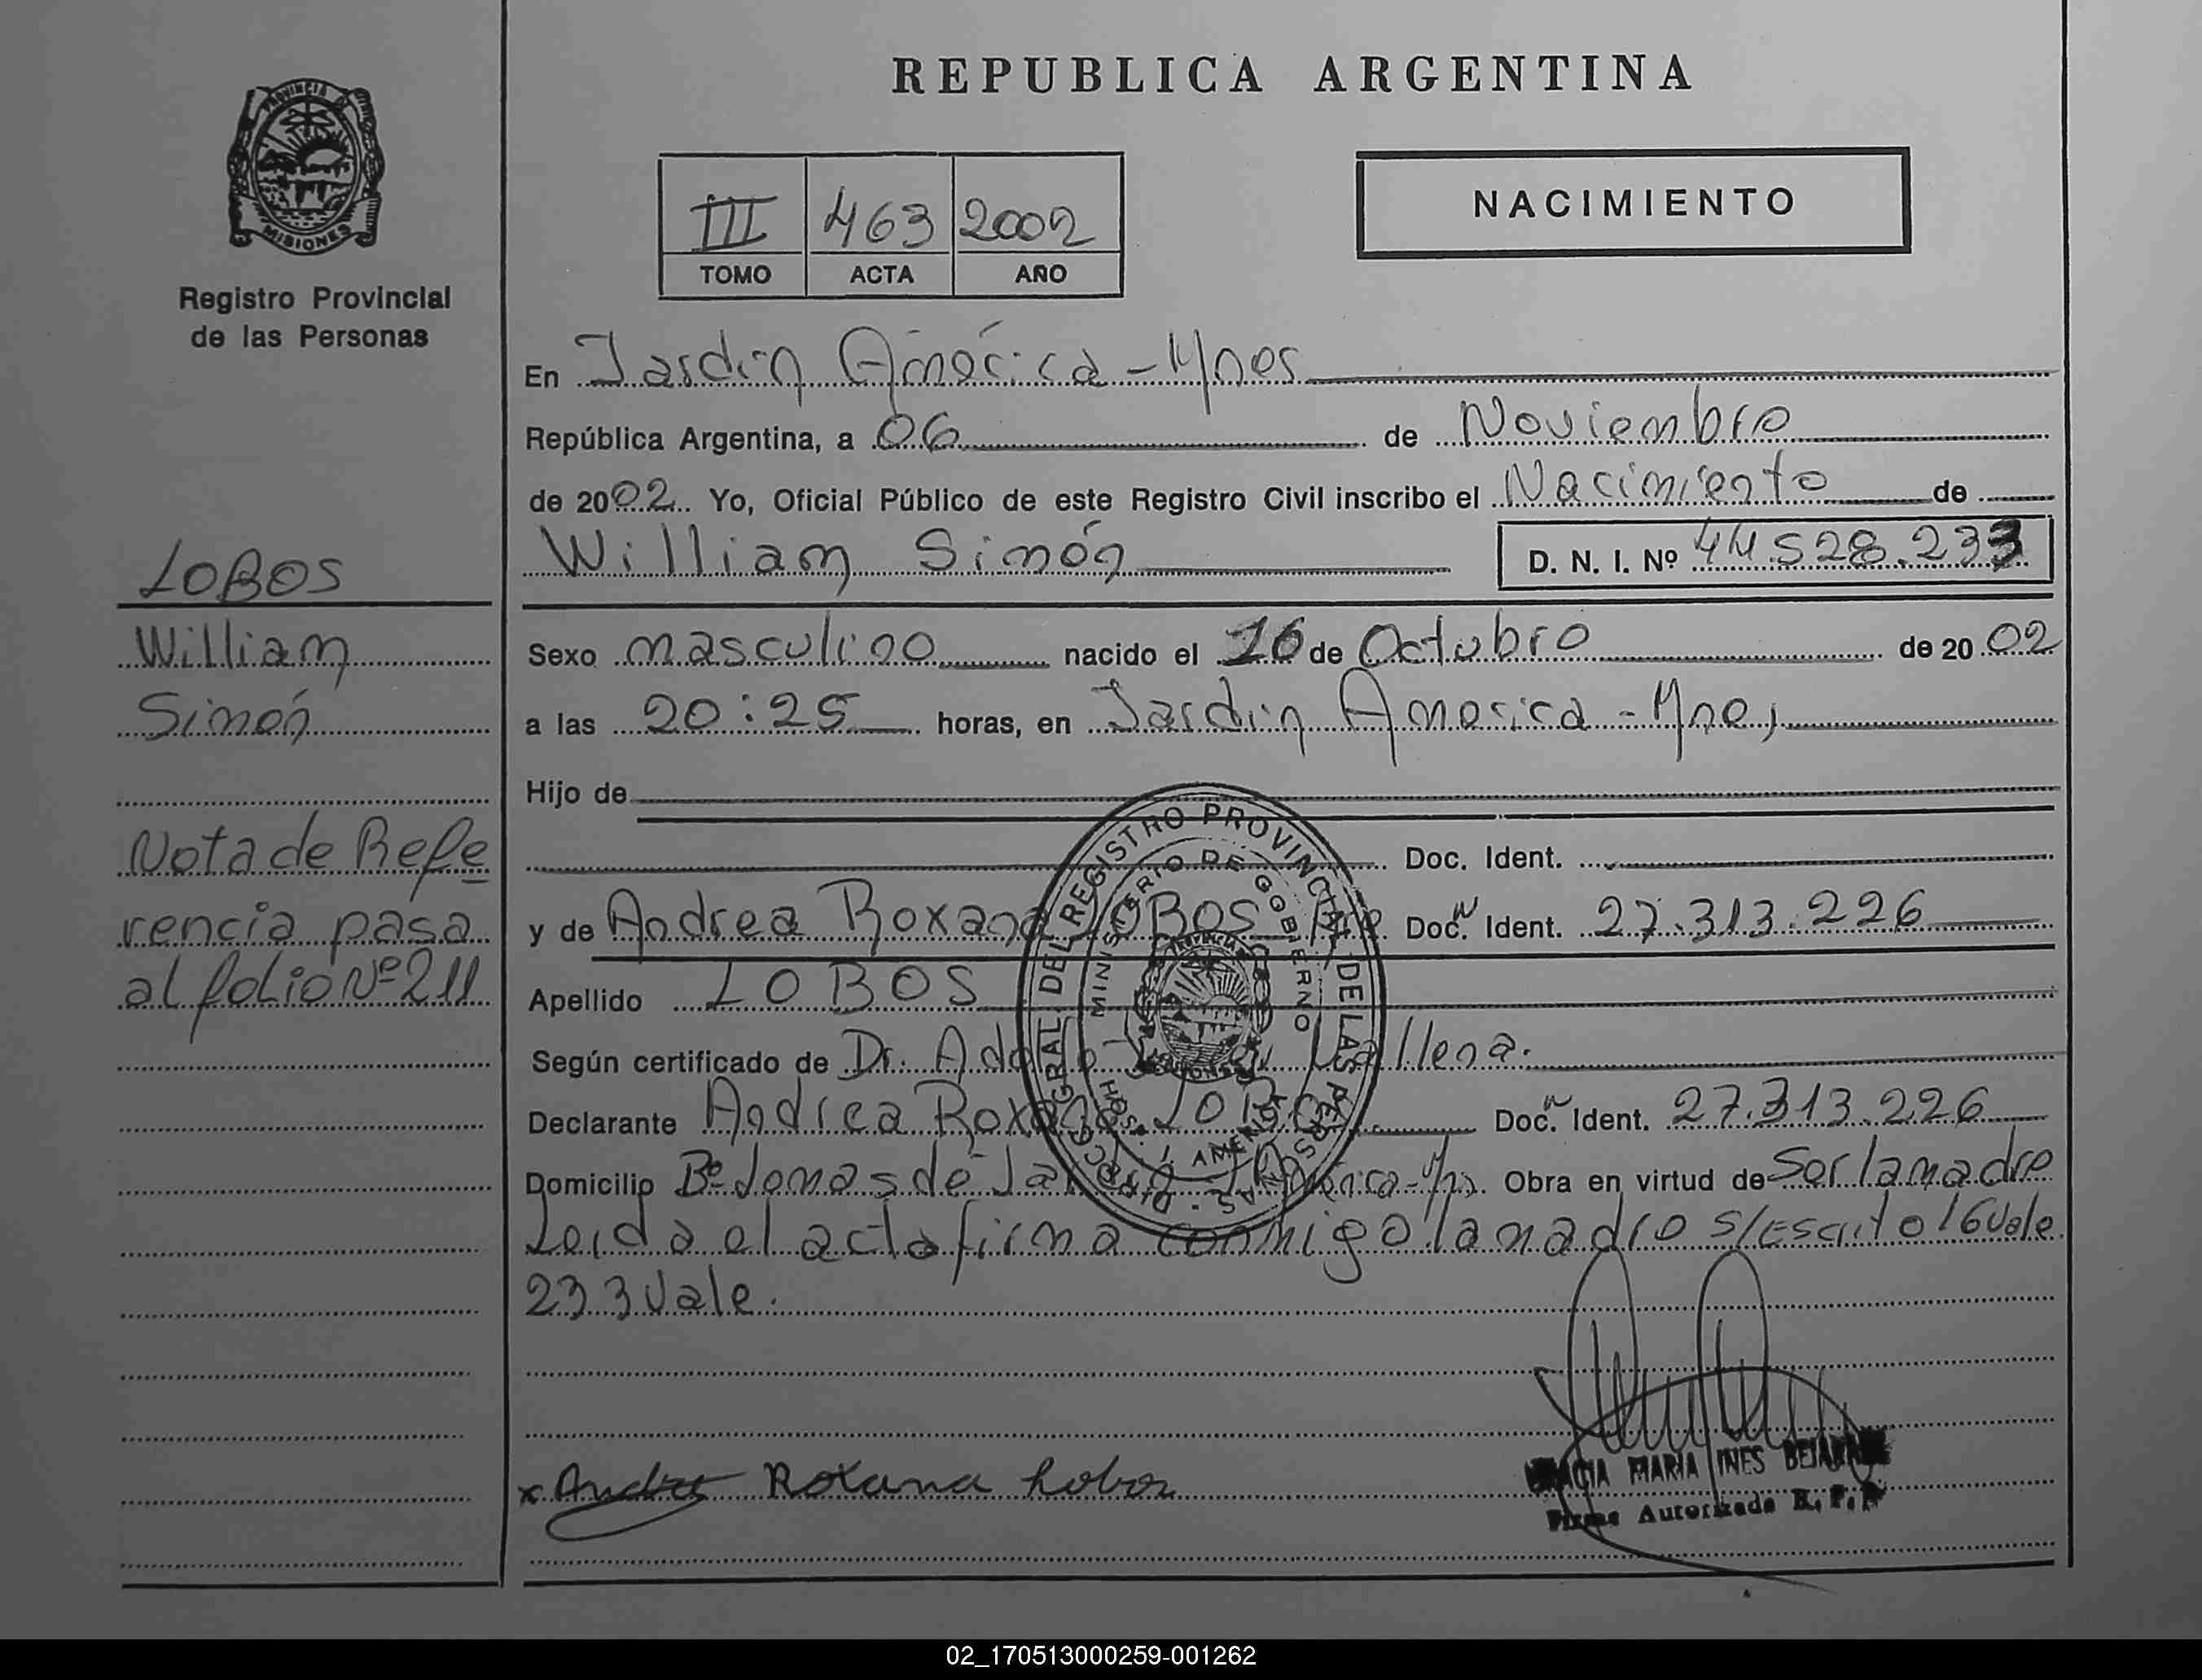 REPUBLICA ARGENTINA
PROVINCIA DE
MISIONES
Registro Provincial
de las Personas
III 463 2002
TOMO ACTA AÑO
NACIMIENTO
En Jardín América - Mnes
República Argentina, a 06 de Noviembre
de 2002. Yo, Oficial Público de este Registro Civil inscribo el Nacimiento de
William Simón D. N. I. Nº 44.528.233
LOBOS
William
Simón
Nota de Refe
rencia pasa
al folio Nº 211
Sexo masculino nacido el 16 de Octubre de 2002
a las 20:25 horas, en Jardín América - Mnes
Hijo de
Doc. Ident.
y de Andrea Roxana LOBOS Doc. Ident. 27.313.226
Apellido LOBOS
Según certificado de Dr. Llena.
Declarante Andrea Roxana LOBOS Doc. Ident. 27.313.226
Domicilio Bº Lomas de Jardín América - Mns. Obra en virtud de Ser la madre
Leída el acta firma conmigo la madre S/Escrito 16 Vale
233 Vale.
DIRECC. GRAL. DEL REGISTRO PROVINCIAL DE LAS PERSONAS
MINISTERIO DE GOBIERNO
x Andrea Roxana Lobos
MARIA INES
Firma Autorizada R. P. P.
02_170513000259-001262